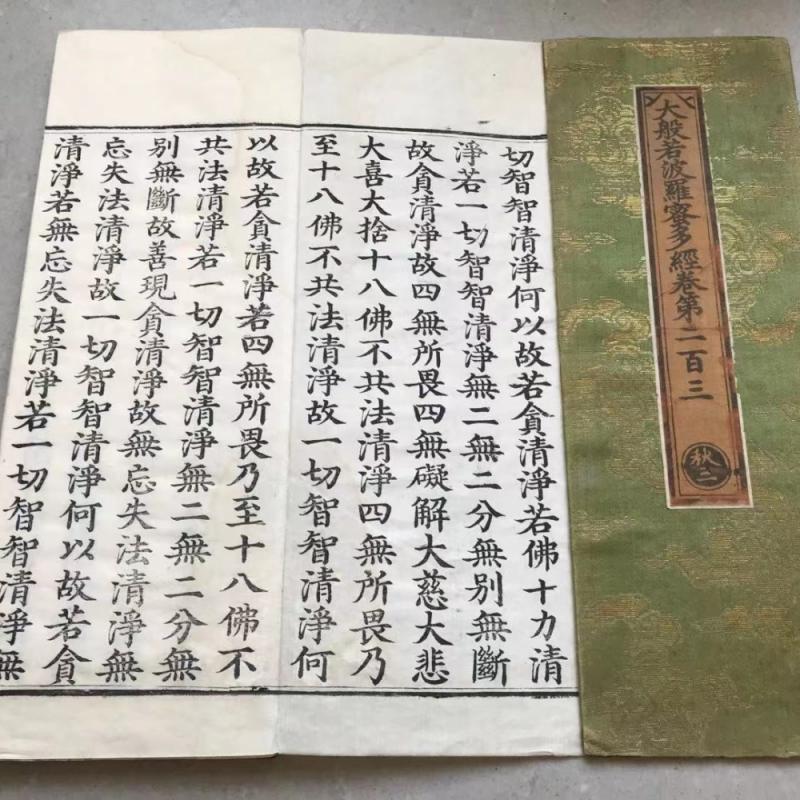 大般若波羅蜜多經卷第二百三
秋二
切智智清淨何以故若貪清淨若佛十力清
淨若一切智智清淨無二無二分無別無斷
故貪清淨故四無所畏四無礙解大慈大悲
大喜大捨十八佛不共法清淨四無所畏乃
至十八佛不共法清淨故一切智智清淨何
以故若貪清淨若四無所畏乃至十八佛不
共法清淨若一切智智清淨無二無二分無
別無斷故善現貪清淨故無忘失法清淨無
忘失法清淨故一切智智清淨何以故若貪
清淨若無忘失法清淨若一切智智清淨無